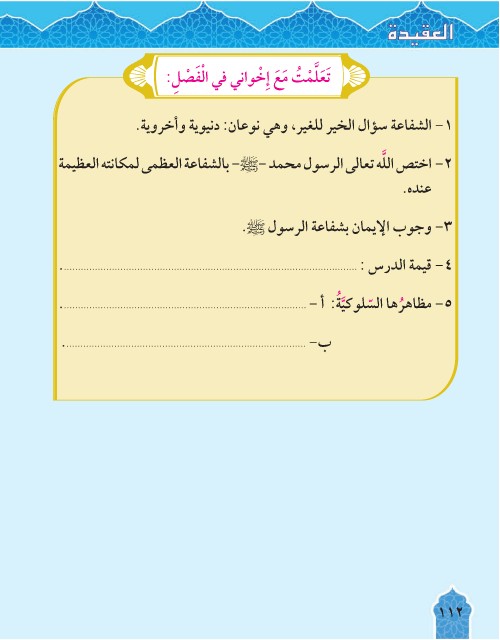 العقيدة
تَعَلَّمْتُ مَعَ إِخْواني في الْفَصْلِ:
١- الشفاعة سؤال الخير للغير، وهي نوعان: دنيوية وأخروية.
٢- اختص اللَّه تعالى الرسول محمد -ﷺ- بالشفاعة العظمى لمكانته العظيمة
عنده.
٣- وجوب الإيمان بشفاعة الرسول ﷺ.
٤- قيمة الدرس : ........................................................
٥- مظاهرُها السّلوكيَّةُ: أ- ........................................................
ب- ........................................................
١١٢